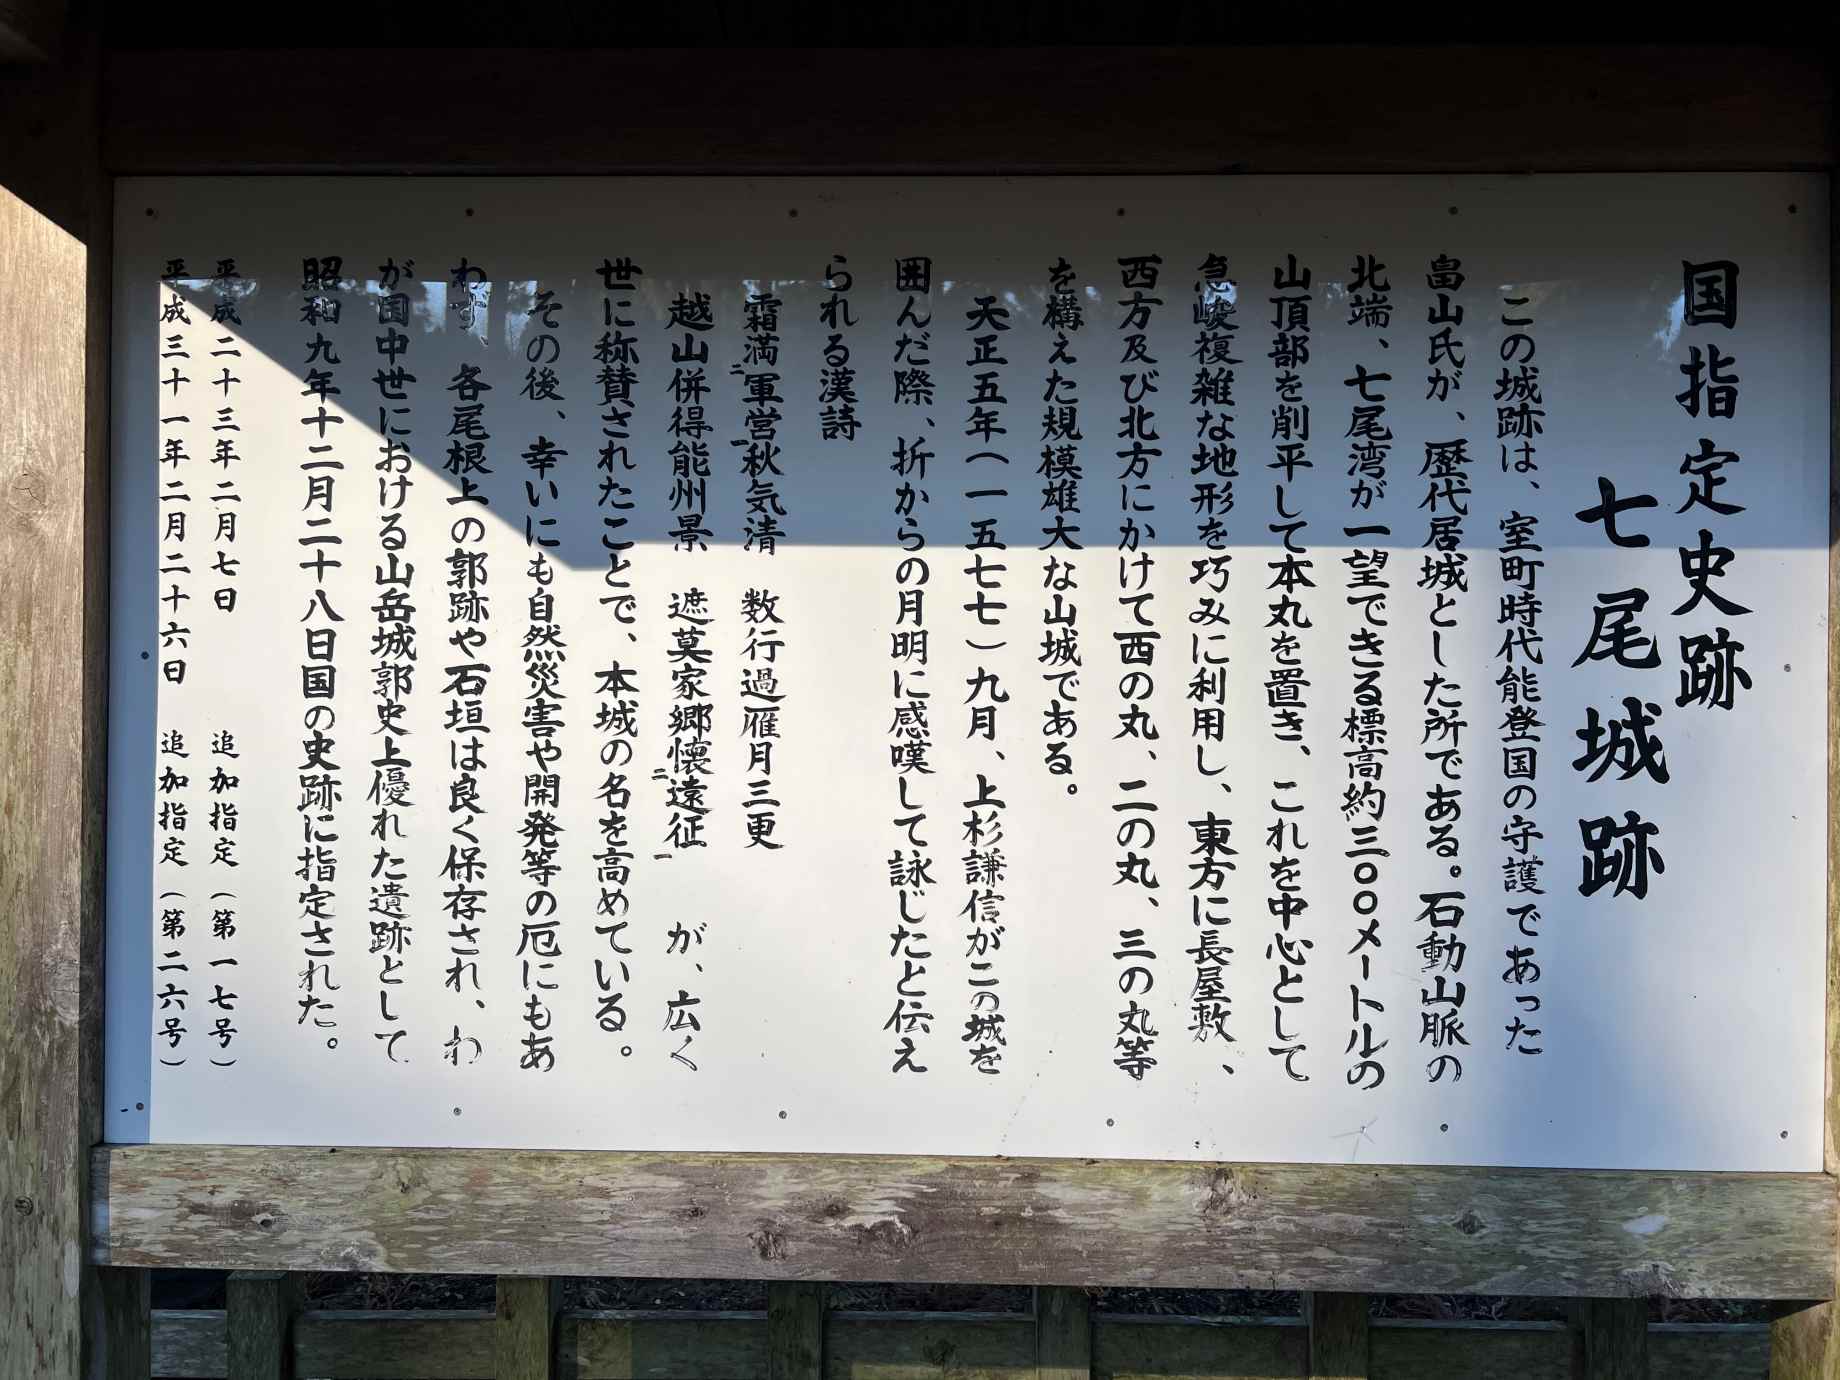 国指定史跡
七尾城跡
この城跡は、室町時代能登国の守護であった
畠山氏が、歴代居城とした所である。石動山脈の
北端、七尾湾が一望できる標高約三〇〇メートルの
山頂部を削平して本丸を置き、これを中心として
急峻複雑な地形を巧みに利用し、東方に長屋敷、
西方及び北方にかけて西の丸、二の丸、三の丸等
を構えた規模雄大な山城である。
天正五年(一五七七)九月、上杉謙信がこの城を
囲んだ際、折からの月明に感嘆して詠じたと伝え
られる漢詩
霜満二軍営一秋気清　数行過雁月三更
越山併得能州景　遮莫家郷懐二遠征一　が、広く
世に称賛されたことで、本城の名を高めている。
その後、幸いにも自然災害や開発等の厄にもあ
わず、各尾根上の郭跡や石垣は良く保存され、わ
が国中世における山岳城郭史上優れた遺跡として
昭和九年十二月二十八日国の史跡に指定された。
平成二十三年二月七日　追加指定(第一七号)
平成三十一年二月二十六日　追加指定(第二六号)